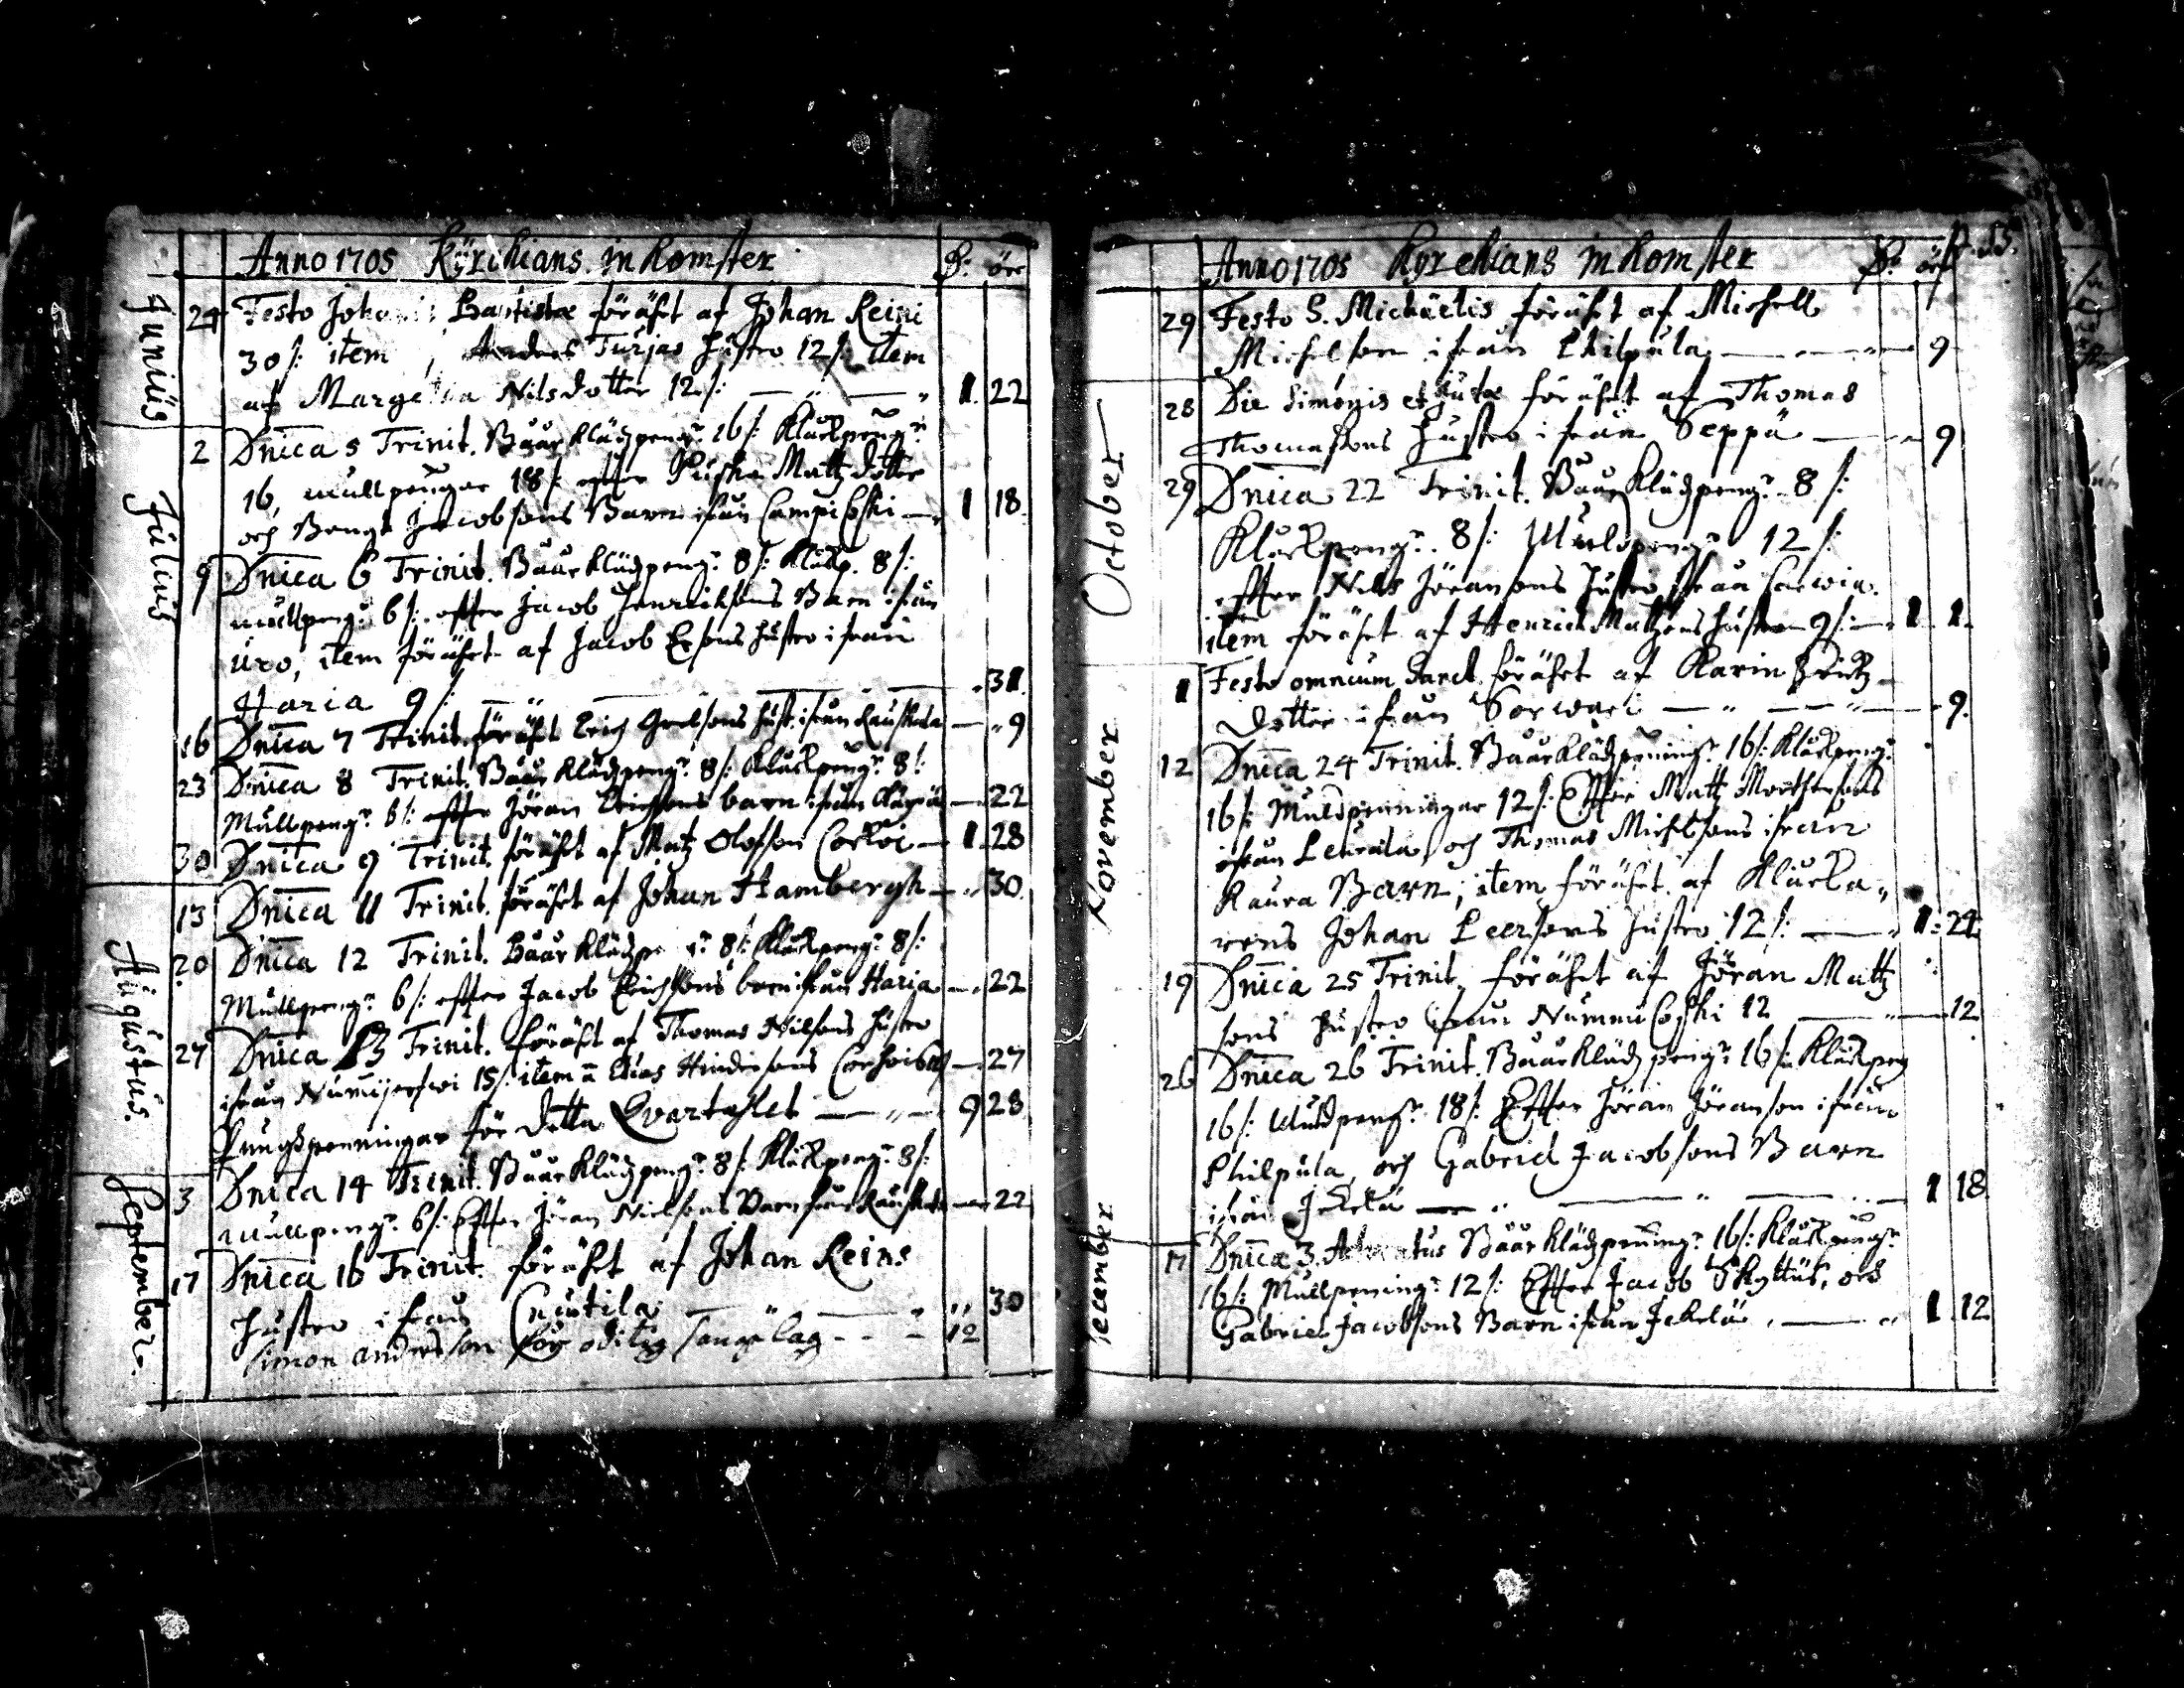 Anno 1705 Kyrckians inkomster D: öre
Junius
24 Festo Johannis Baptistæ förährt af Johan Reini
30 /: item, Anders Turjas hustro 12 /: item
af Margeta Nilsdotter 12 /: — " — " 1 22
Julius
2 Dnica 5 Trinit. Baarklädpeng:r 16 /: Klåckpeng:r
16, mullpengar 18 /: effter Matzdotter
och Bengt Jacobsons Barn ifrån Campikoski — 1 18
9 Dnica 6 Trinit. Baarklädpeng:r 8 /: Klåckp. 8 /:
mullpeng:r 6 /: effter Jacob Henricksons Barn ifrån
Uro, item förährt af Jacob Ersons hustro ifrån
Haria 9 /: — " — — 31
16 Dnica 7 Trinit. förährt Erich Grelsons hust: ifrån Rauskala — " 9
23 Dnica 8 Trinit. Baarklädpeng:r 8 /: Klåckpeng:r 8 /:
Mullpeng:r 6 /: effter Jöran Erichsons barn ifrån — 22
30 Dnica 9 Trinit. förährt af Matz Olofson Corkoi — 1 28
Augustus.
13 Dnica 11 Trinit. förährt af Johan Hambergh — " 30
20 Dnica 12 Trinit. Baarklädpe:r 8 /: Klåckpeng:r 8 /:
Mullpeng:r 6 /: effter Jacob Erichsons barn ifrån Haria — 22
27 Dnica 13 Trinit. förährt af Thomas Nilsons hustro
ifrån Numijerfwi 15 /: item Elias Hindersons — 27
Pungspenningar för detta Qvartahlet — " — 9 28
September
3 Dnica 14 Trinit. Baarklädpeng:r 8 /: Klåckpeng:r 8 /:
mullpeng:r 6 /: Effter Jöran Nielsons Barn ifrån Rauskala — 22
17 Dnica 16 Trinit. förährt af Johan Reins
hustro ifrån Cnutila — " — " 30
Simon andersson för lag - - - 12
Anno 1705 Kyrckians inkomster D: öre p. 55.
29 Festo S. Michäelis förährt af Michell
Michelson ifrån Philpula — " — 9
October
28 Die Simonis et Judæ förährt af Thomas
Thomasons hustro ifrån Seppä — " 9
29 Dnica 22 Trinit. Baarklädpeng:r 8 /:
Klåckpeng:r 8 /: Muldpeng:r 12 /:
effter Nils Jöransons hustro ifrån
item förährt af Henrich Matzons hustro 9 /: — 1 1
November
1 Festo omnium Sanct. förährt af Karin
dotter ifrån Sorwari — " — " — 9.
12 Dnica 24 Trinit. Baarklädpening:r 16 /: Klåckpeng:r
16 /: Muldpenningar 12 /: Effter Matz
ifrån Leurala och Thomas Michelsons ifrån
Kaura Barn, item förährt af Klucka„
rens Johan Leersons hustro 12 /: — " 1: 24
19 Dnica 25 Trinit. förährt af Jöran Matz
sons hustro ifrån Nummikoski 12 — " — 12
26 Dnica 26 Trinit. Baarklädpeng:r 16 /: Klåckpeng
16 /: Muldpeng:r 18 /: Effter Jöran Jöranson ifrån
Philpula, och Gabriel Jacobsons Barn
ifrån Jekelä — " — " — 1 18
December
17 Dnica 3. Adventus Baarklädpenning:r 16 /: Klåckpeng:r
16 /: Mullpening:r 12 /: Effter Jacob Skyttus, och
Gabriel Jacobsons Barn ifrån Jekelä, — " 1 12